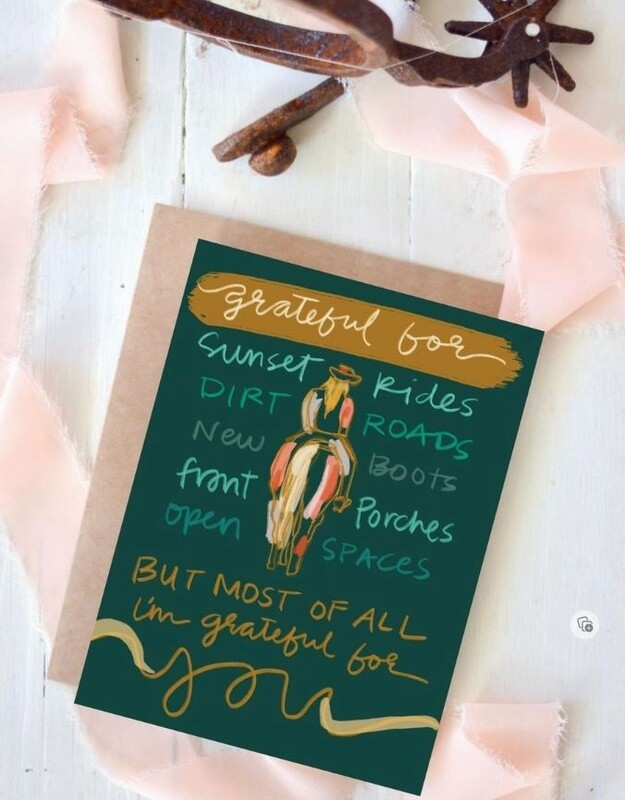 grateful for
Sunset Rides
DIRT ROADS
New Boots
front Porches
open SPACES
BUT MOST OF ALL
i'm grateful for
you